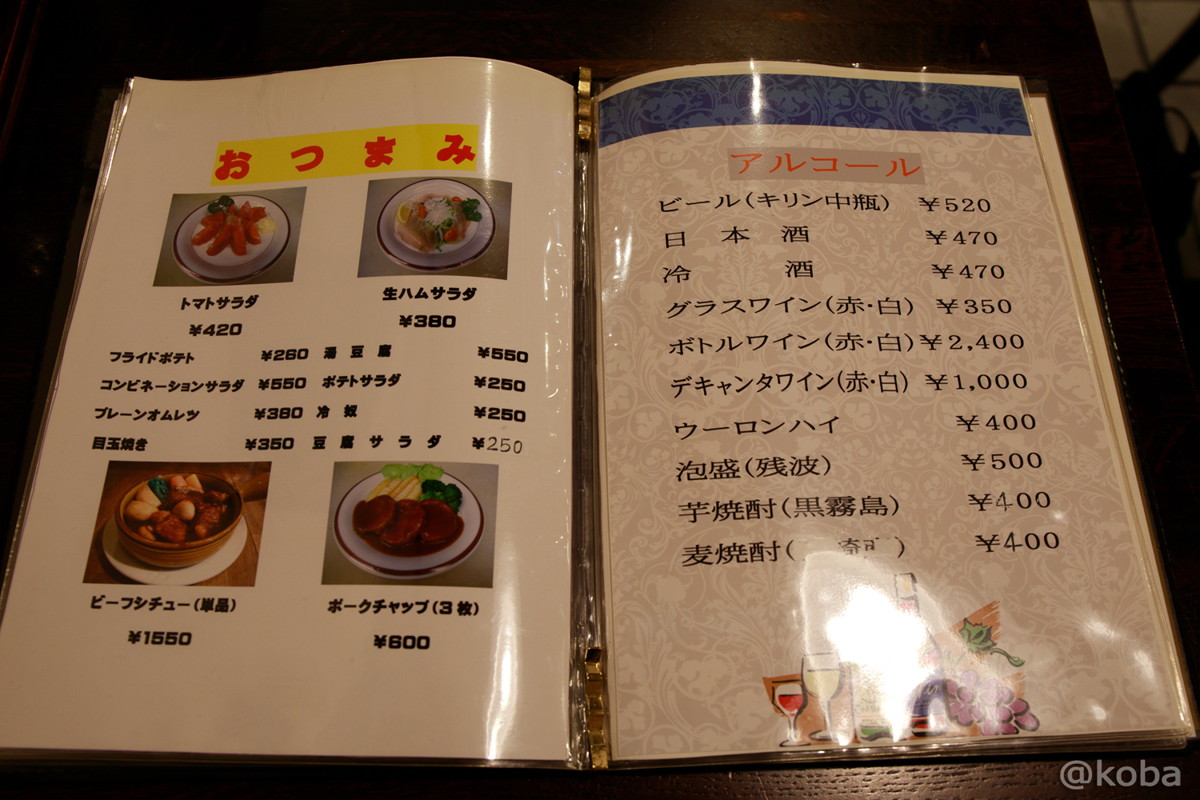 おつまみ
トマトサラダ
¥420
生ハムサラダ
¥380
フライドポテト ¥260 湯豆腐 ¥550
コンビネーションサラダ ¥550 ポテトサラダ ¥250
プレーンオムレツ ¥380 冷奴 ¥250
目玉焼き ¥350 豆腐サラダ ¥250
ビーフシチュー(単品)
¥1550
ポークチャップ(3枚)
¥600
アルコール
ビール(キリン中瓶) ¥520
日本酒 ¥470
冷酒 ¥470
グラスワイン(赤・白) ¥350
ボトルワイン(赤・白) ¥2,400
デキャンタワイン(赤・白) ¥1,000
ウーロンハイ ¥400
泡盛(残波) ¥500
芋焼酎(黒霧島) ¥400
麦焼酎( ) ¥400
@koba